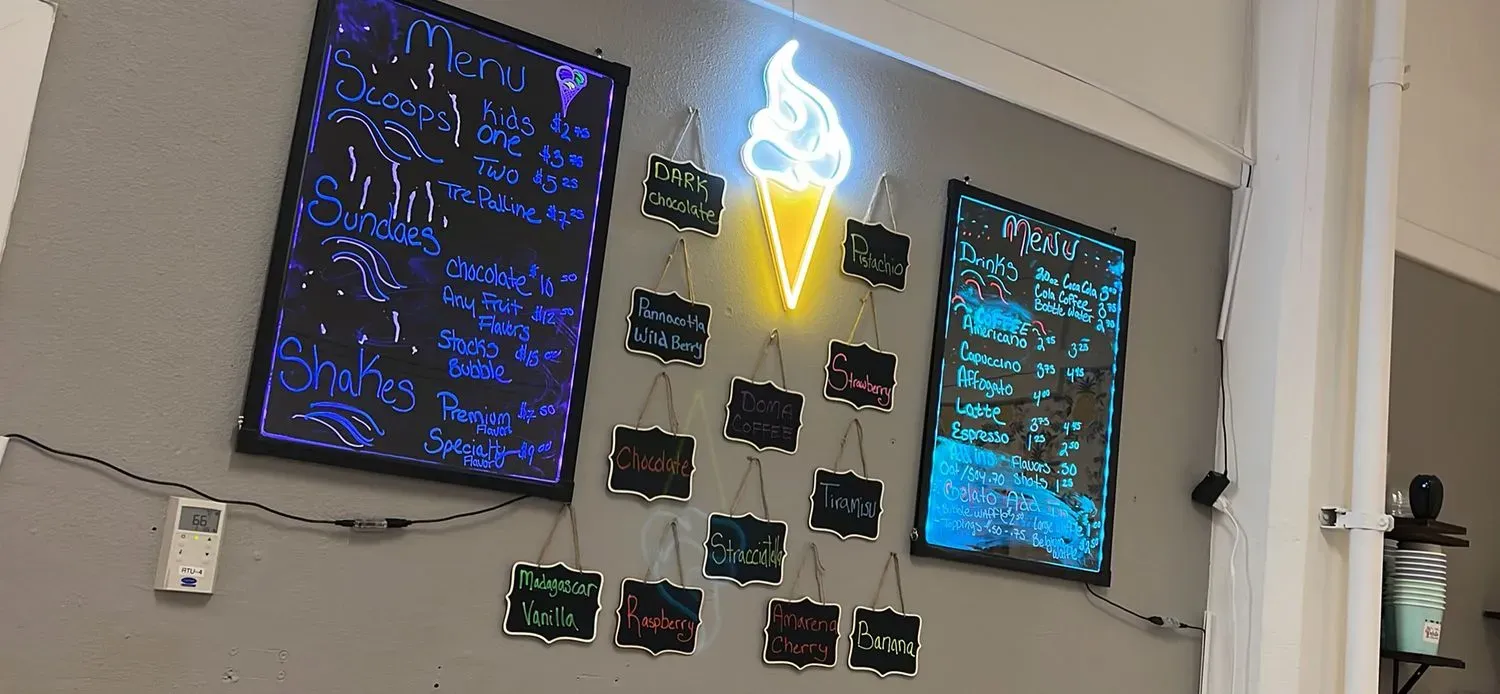 Menu
Scoops
Kids $2.75
One $3.75
Two $5.25
Tre Palline $7.25
Sundaes
Chocolate $10.50
Any Fruit $12.50
Flavors
Stacks $15.00
Bubble
Shakes
Premium $7.50
Flavor
Specialty $9.00
Flavor
DARK
chocolate
Pistachio
Pannacotta
Wild Berry
Strawberry
DOMA
COFFEE
Chocolate
Tiramisu
Stracciatella
Madagascar
Vanilla
Raspberry
Amarena
Cherry
Banana
Menu
Drinks
20oz Coca Cola 3.00
Cola Coffee 3.75
Bottle Water 2.50
COFFEE
Americano 2.25 3.25
Capuccino 3.75 4.95
Affogato 4.00
Latte 3.75 4.95
Espresso 1.25 2.50
Flavors .50
Oat/Soy .70 Shots 1.25
Gelato Add
Toppings .50 - .75
Waffle
66
RTU-4